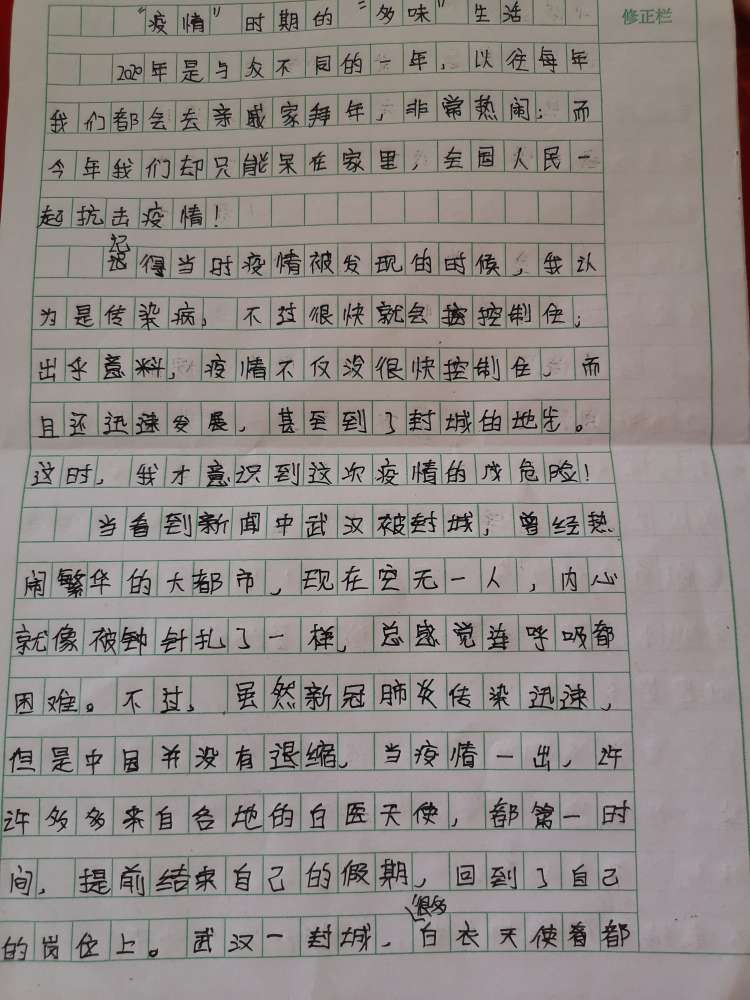 "疫情"时期的"多味"生活
修正栏
2020年是与众不同的一年，以往每年
我们都会去亲戚家拜年，非常热闹；而
今年我们却只能呆在家里，全国人民一
起抗击疫情！
记得当时疫情被发现的时候，我认
为是传染病，不过很快就会控制住；
出乎意料，疫情不仅没很快控制住，而
且还迅速发展，甚至到了封城的地步。
这时，我才意识到这次疫情的危险！
当看到新闻中武汉被封城，曾经热
闹繁华的大都市，现在空无一人，内心
就像被针扎了一样，总感觉连呼吸都
困难。不过，虽然新冠肺炎传染迅速，
但是中国并没有退缩，当疫情一出，许
许多多来自各地的白医天使，都第一时
间，提前结束自己的假期，回到了自己
的岗位上。武汉一封城，很多白衣天使看都